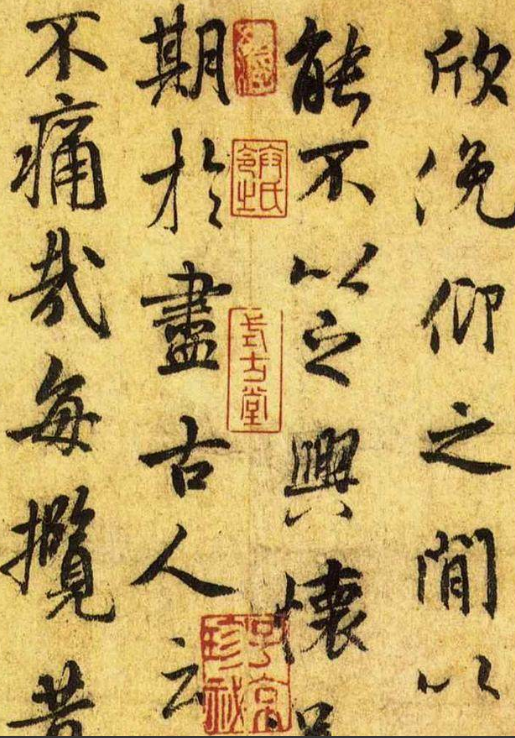 欣俛仰之閒以
能不以之興懷
期於盡古人云
不痛哉每攬昔
式古堂
子京珍秘